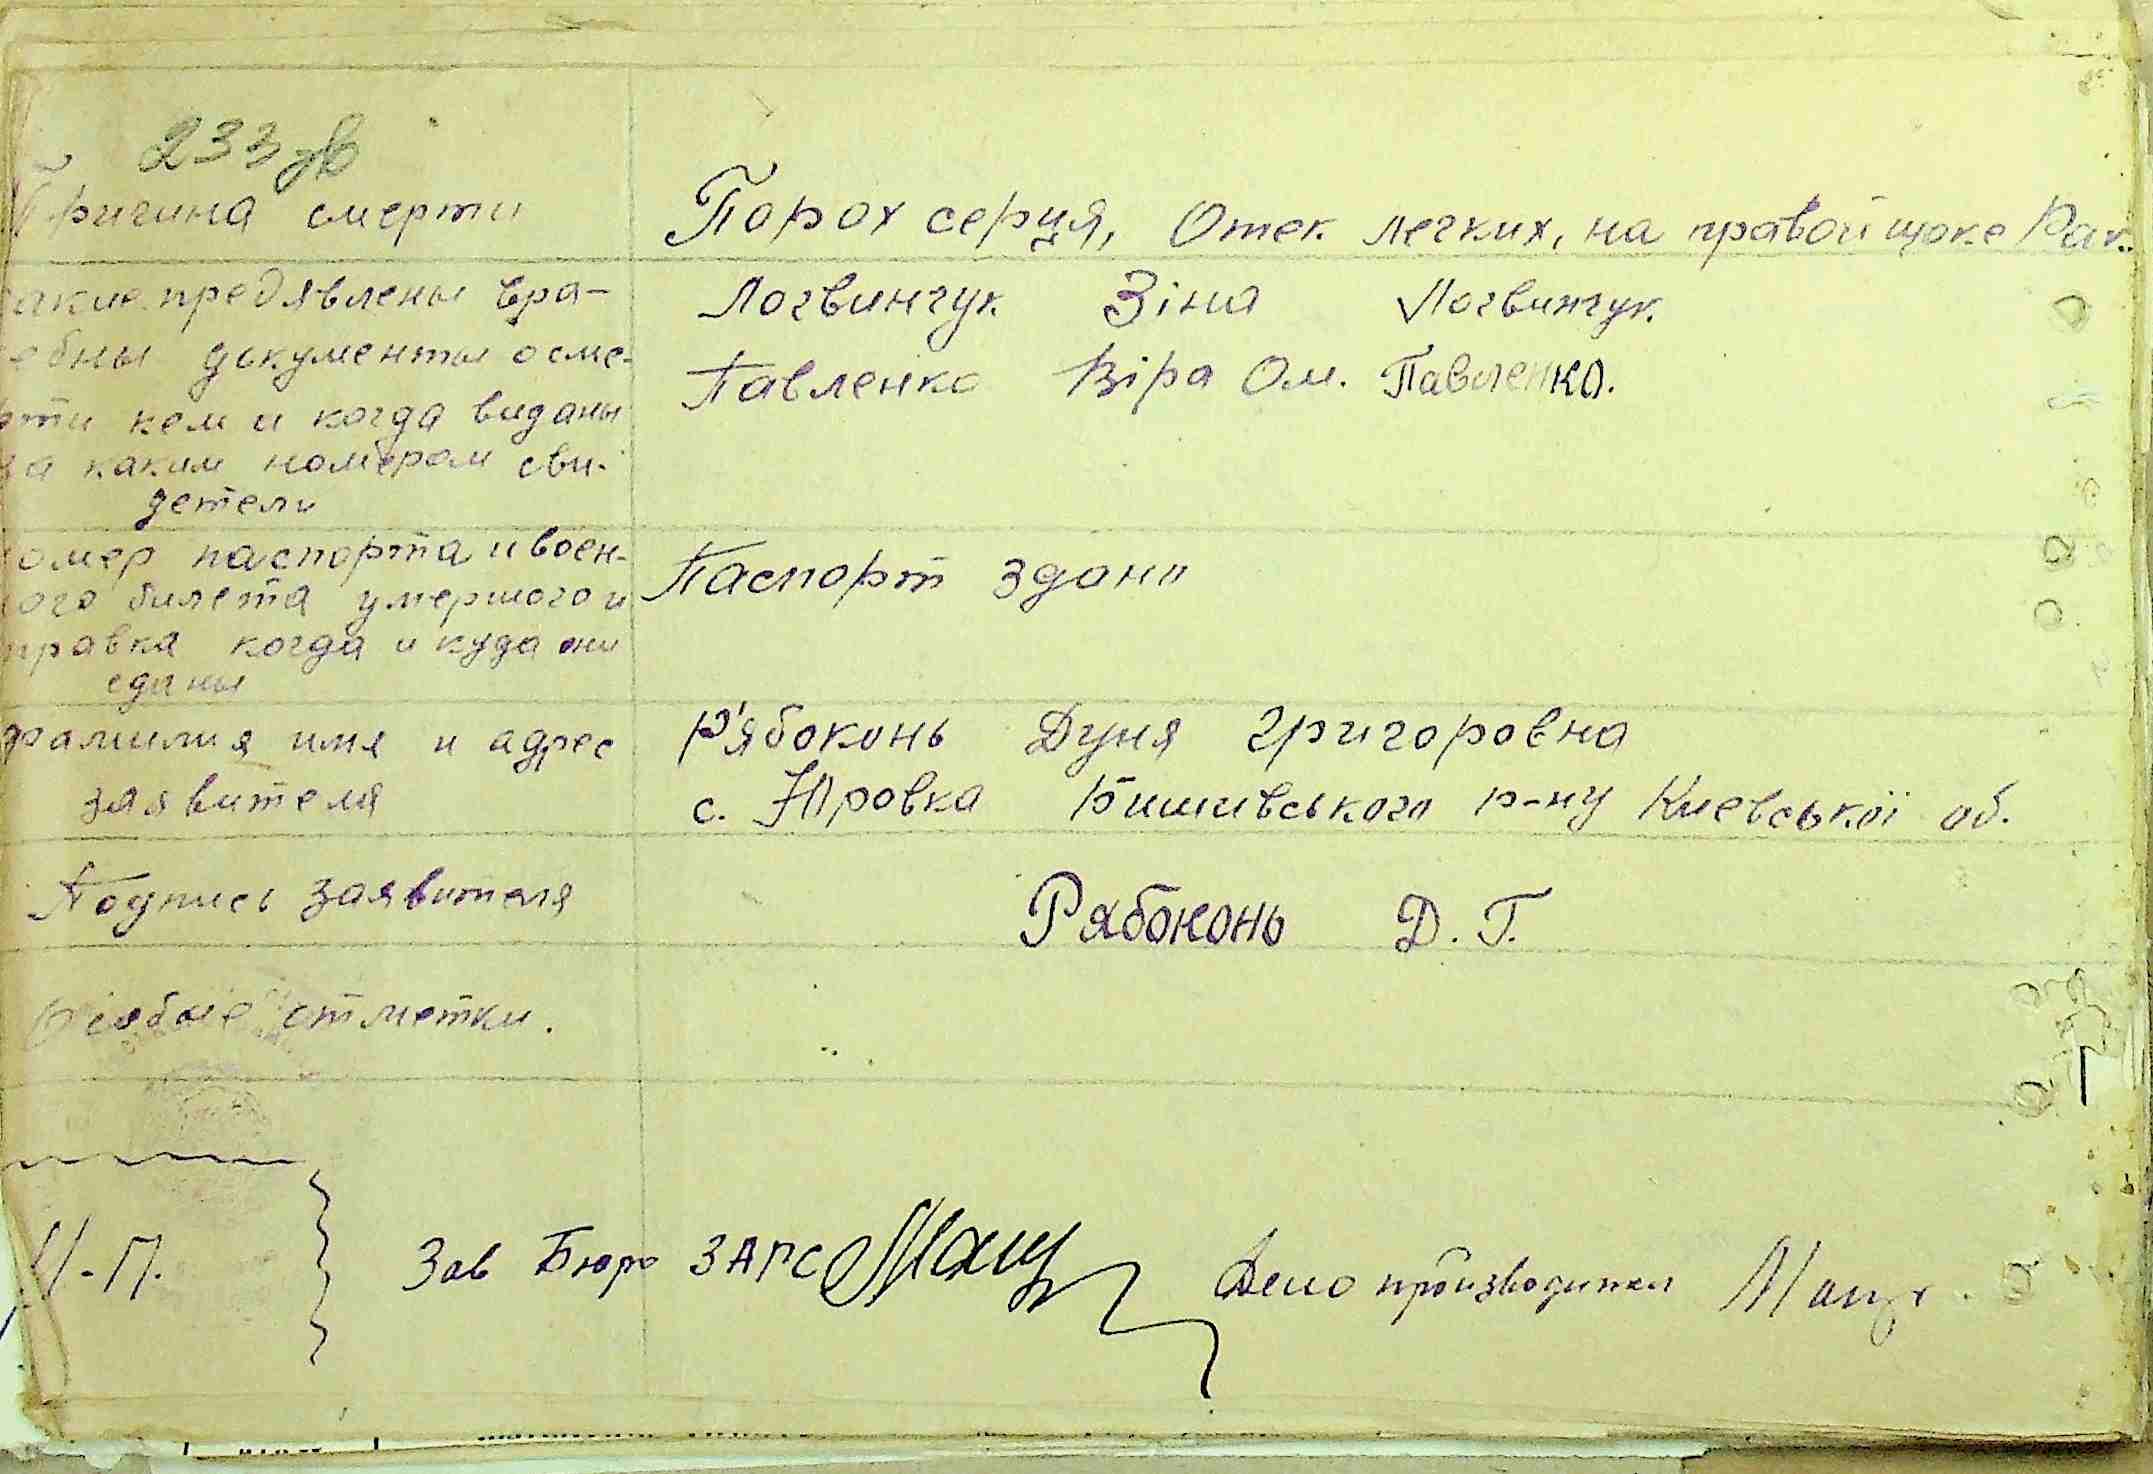 233
Причина смерти
Порох серця, Отек легких, на правой щоке Рак.
акие предявлены вра-
ебны документы о сме-
рти кем и когда виданы
за каким номером сви-
детели
Логвинчук Зіна Логвинчук.
Павленко Віра Ом. Павленко.
омер паспорта и воен-
ого билета умершого и
правка когда и куда они
сданы
Паспорт здано
фамилия имя и адрес
заявителя
Р'ябоконь Дуня Григоровна
с. Юровка Бишивського р-ну Киевської об.
Подпись заявителя
Рябоконь Д. Г.
Особые отметки.
М.П.
Зав Бюро ЗАГС
Дело производител